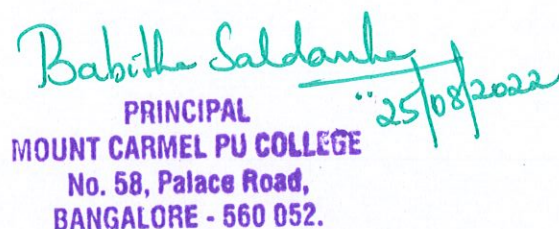 Babitha Saldanha
25/08/2022
PRINCIPAL
MOUNT CARMEL PU COLLEGE
No. 58, Palace Road,
BANGALORE - 560 052.